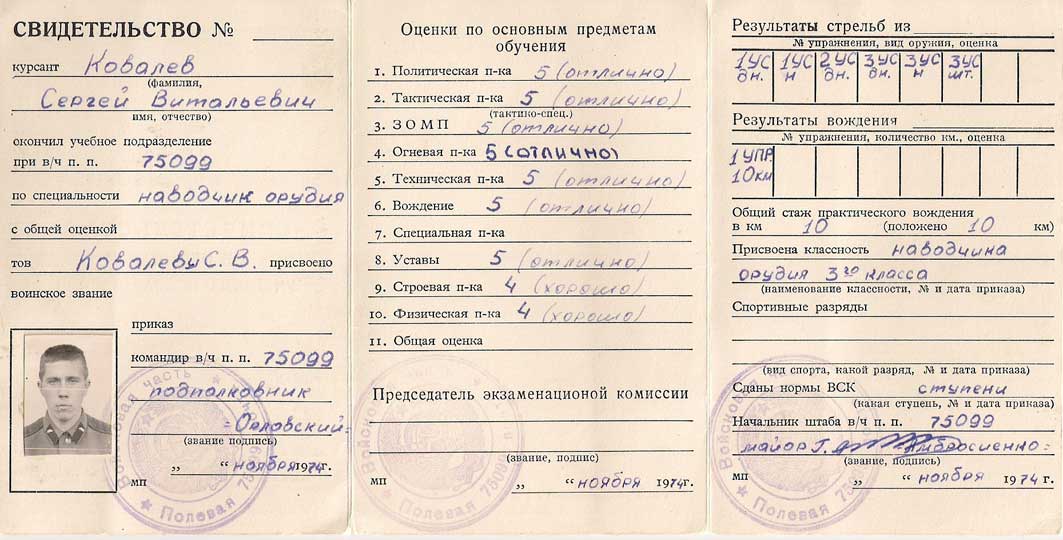 СВИДЕТЕЛЬСТВО №
курсант Ковалев
(фамилия,
Сергей Витальевич
имя, отчество)
окончил учебное подразделение
при в/ч п. п. 75099
по специальности наводчик орудия
с общей оценкой
тов Ковалеву С. В. присвоено
воинское звание
приказ
командир в/ч п. п. 75099
подполковник
=Орловский=
(звание подпись)
„ “ ноября 1974г.
мп
Полевая
Оценки по основным предметам
обучения
1. Политическая п-ка 5 (отлично)
2. Тактическая п-ка 5 (отлично)
(тактико-спец.)
3. ЗОМП 5 (отлично)
4. Огневая п-ка 5 (отлично)
5. Техническая п-ка 5 (отлично)
6. Вождение 5 (отлично)
7. Специальная п-ка
8. Уставы 5 (отлично)
9. Строевая п-ка 4 (хорошо)
10. Физическая п-ка 4 (хорошо)
11. Общая оценка
Председатель экзаменационной комиссии
(звание, подпис)
мп „ “ ноября 1974г.
Полевая
Результаты стрельб из
№ упражнения, вид оружия, оценка
1 УС дн. 1 УС н 2 УС дн. 3 УС дн. 3 УС н 3 УС шт.
Результаты вождения
№ упражнения, количество км., оценка
1 УПР.
10 км
Общий стаж практического вождения
в км 10 (положено 10 км)
Присвоена классность наводчика
орудия 3го класса
(наименование классности, № и дата приказа)
Спортивные разряды
(вид спорта, какой разряд, № и дата приказа)
Сданы нормы ВСК ступени
(какая ступень, № и дата приказа)
Начальник штаба в/ч п. п. 75099
майор Г. Амбросиенко=
(звание, подпись)
мп „ “ ноября 1974 г.
Полевая